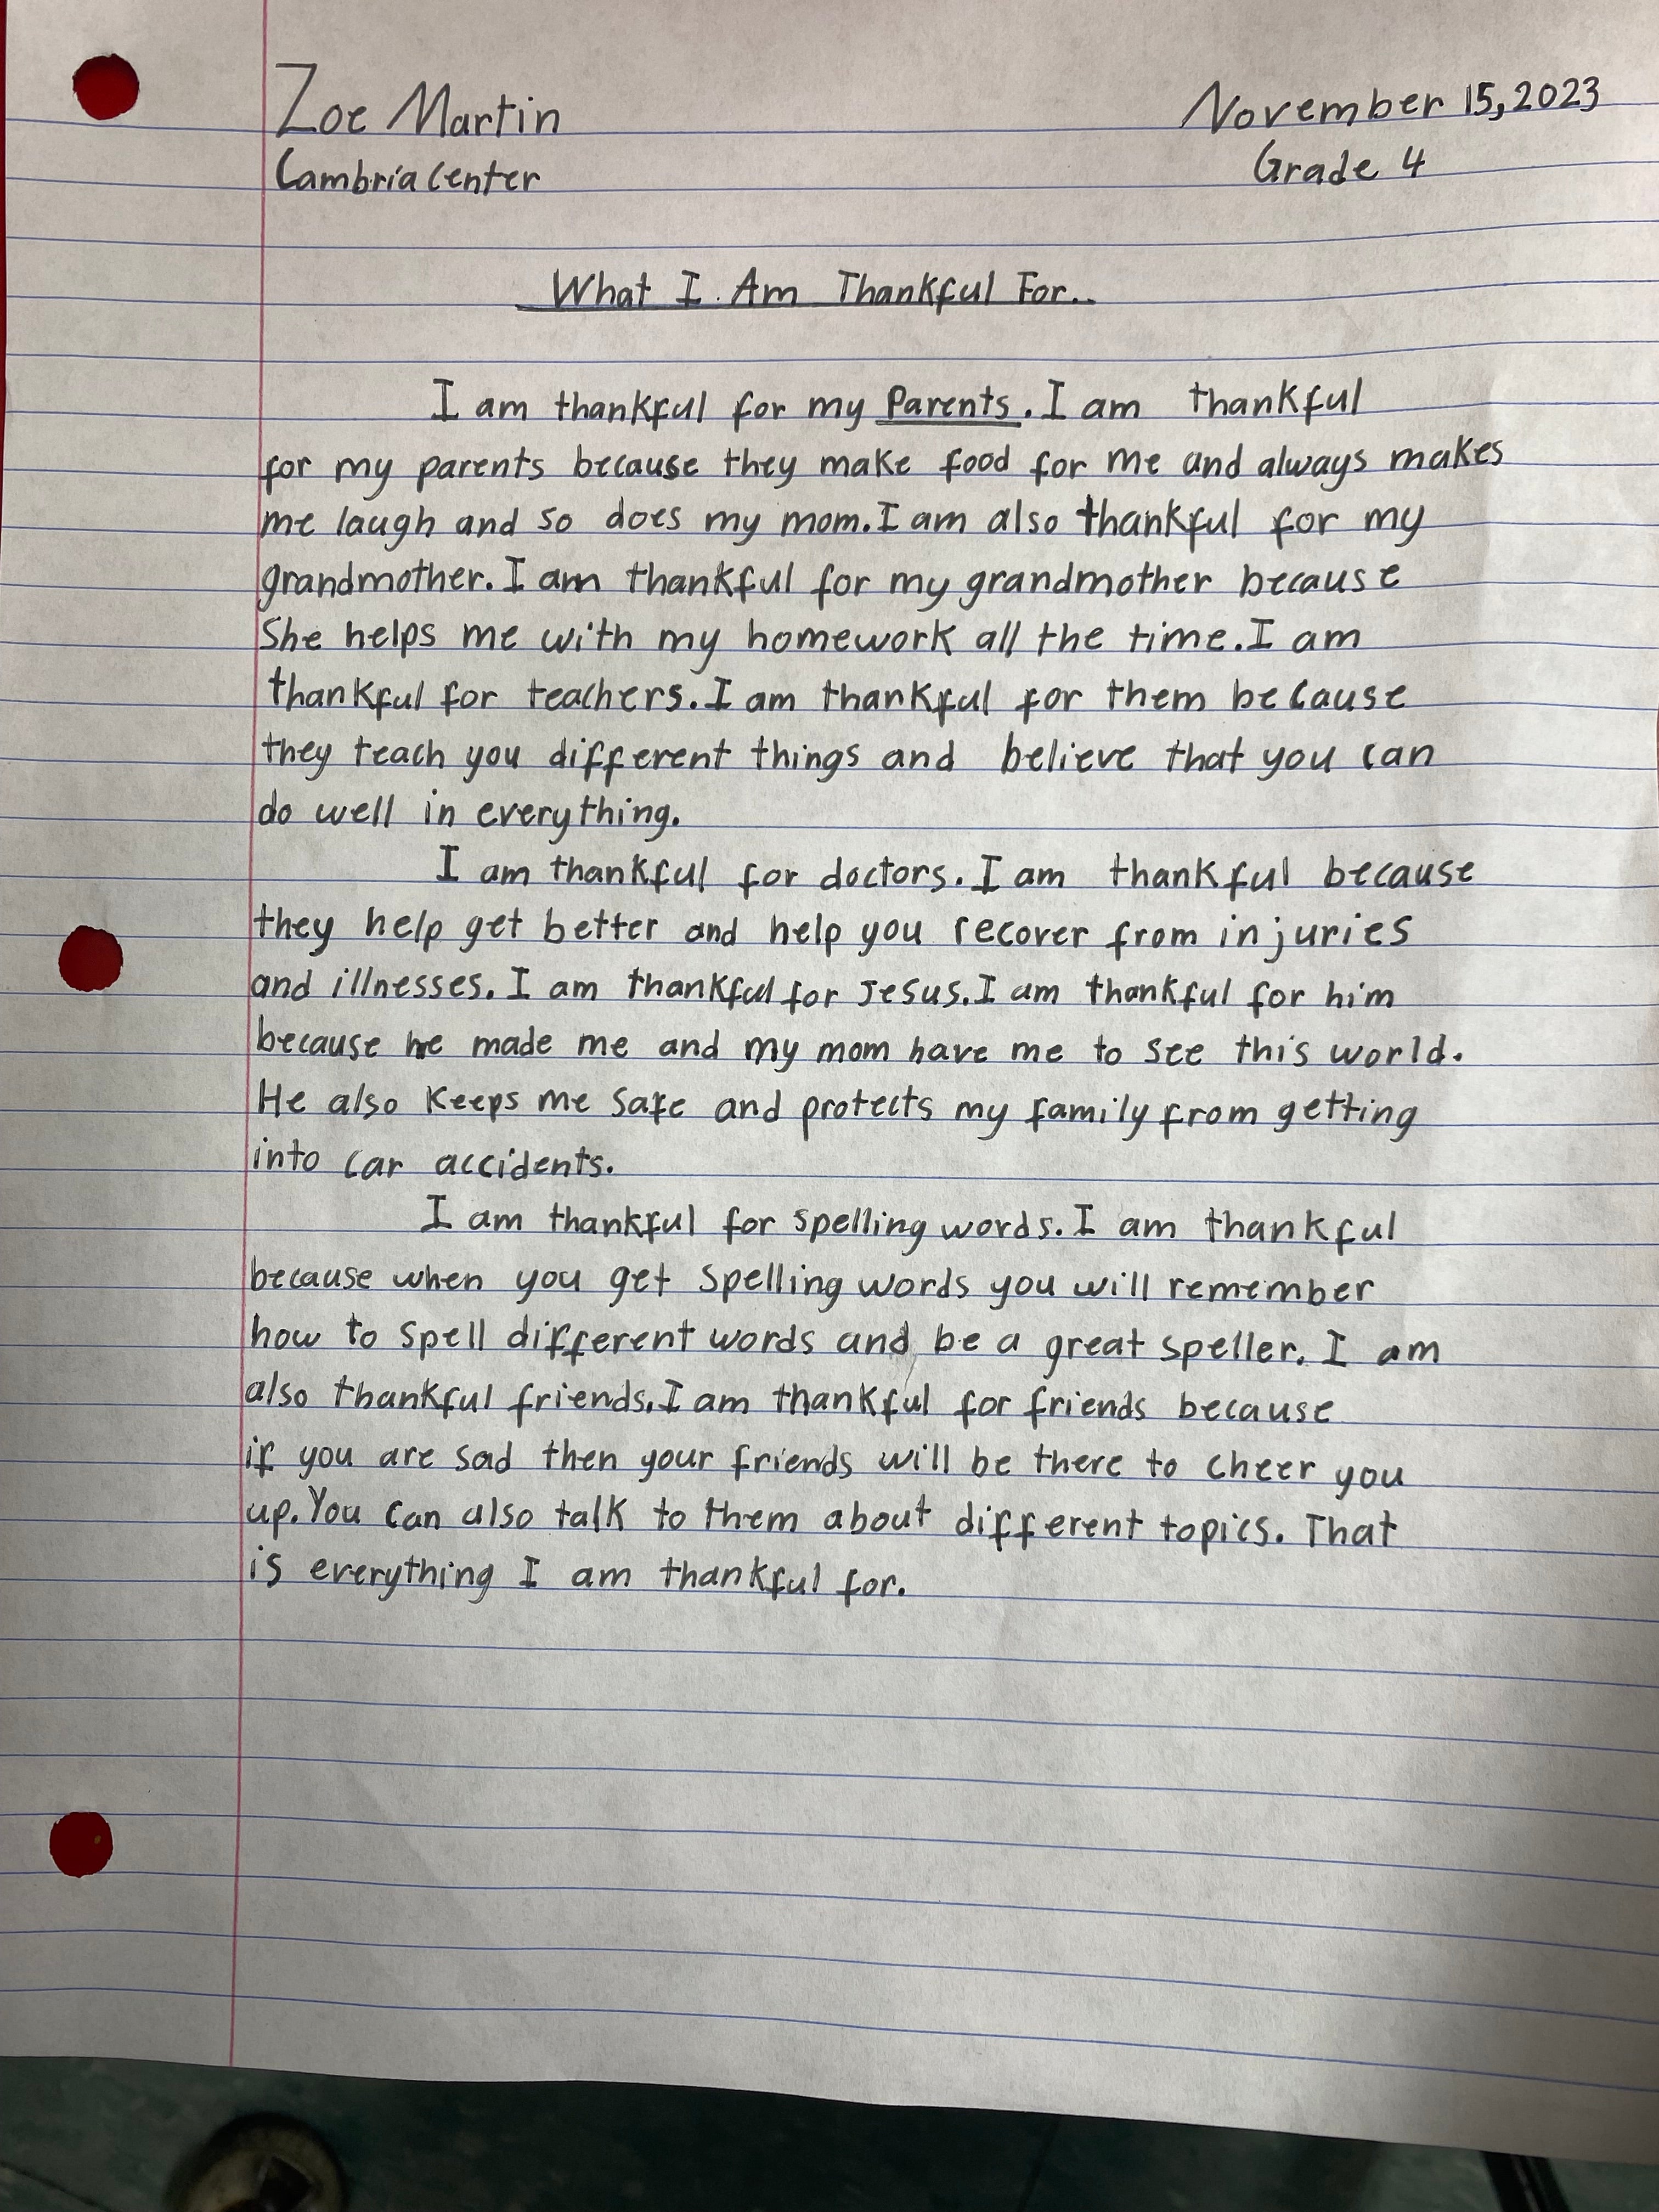 Zoe Martin November 15, 2023
Cambria Center Grade 4
What I Am Thankful For..
I am thankful for my Parents. I am thankful
for my parents because they make food for me and always makes
me laugh and so does my mom. I am also thankful for my
grandmother. I am thankful for my grandmother because
She helps me with my homework all the time. I am
thankful for teachers. I am thankful for them because
they teach you different things and believe that you can
do well in everything.
I am thankful for doctors. I am thankful because
they help get better and help you recover from injuries
and illnesses. I am thankful for Jesus. I am thankful for him
because he made me and my mom have me to see this world.
He also keeps me safe and protects my family from getting
into car accidents.
I am thankful for spelling words. I am thankful
because when you get spelling words you will remember
how to spell different words and be a great speller. I am
also thankful friends. I am thankful for friends because
if you are sad then your friends will be there to cheer you
up. You can also talk to them about different topics. That
is everything I am thankful for.